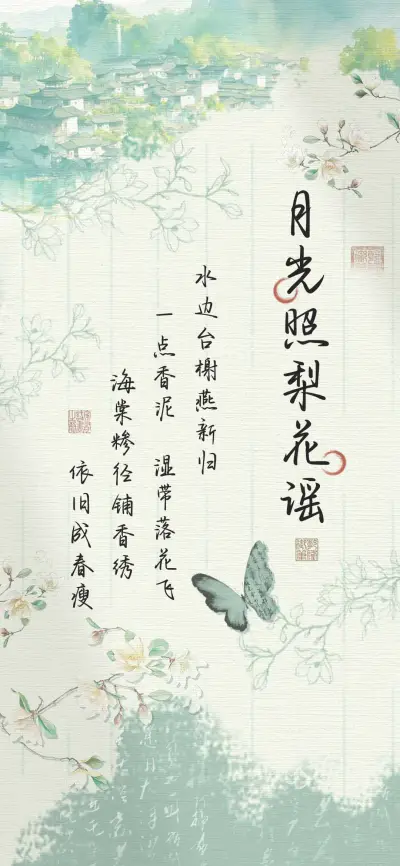 月光照梨花谣
水边台榭燕新归
一点香泥 湿带落花飞
海棠糁径铺香绣
依旧成春瘦